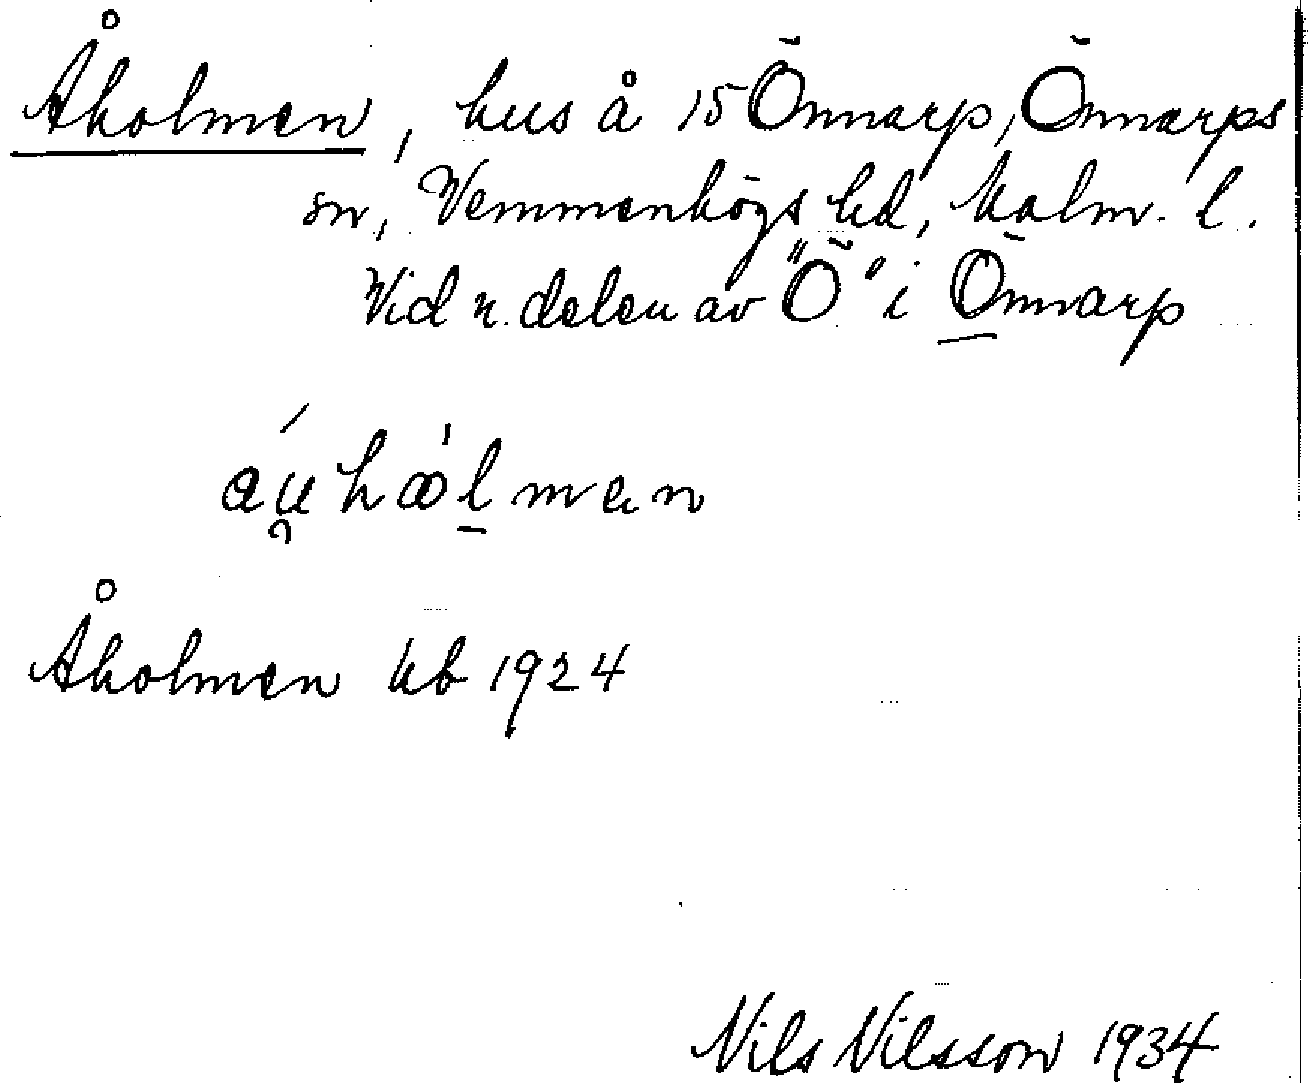 Åholmen, hus å 15 Önnarp, Önnarps
sn, Vemmenhögs hd, Malm. l.
Vid n. delen av "Ö" i Önnarp
Åholmen kb 1924
Nils Nilsson 1934